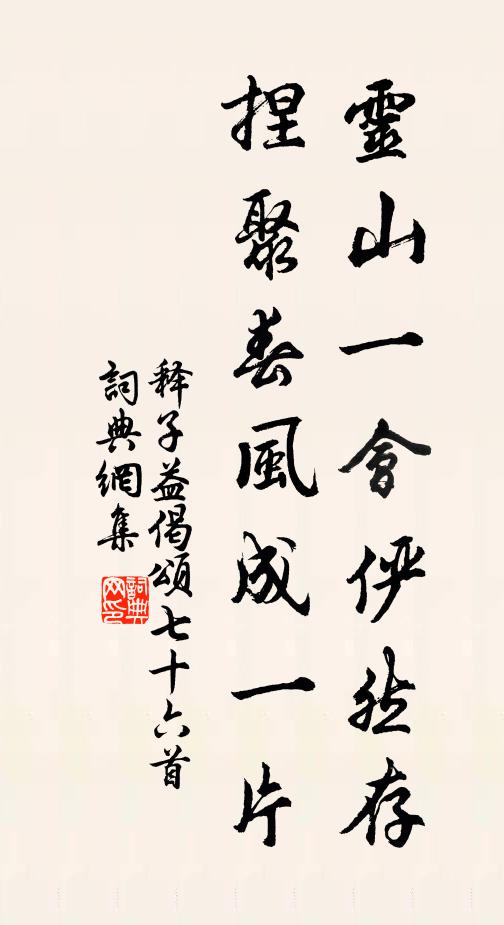 靈山一會儼然存
捏聚春風成一片
释子益偈頌七十六首
詞典網集
詞典网印